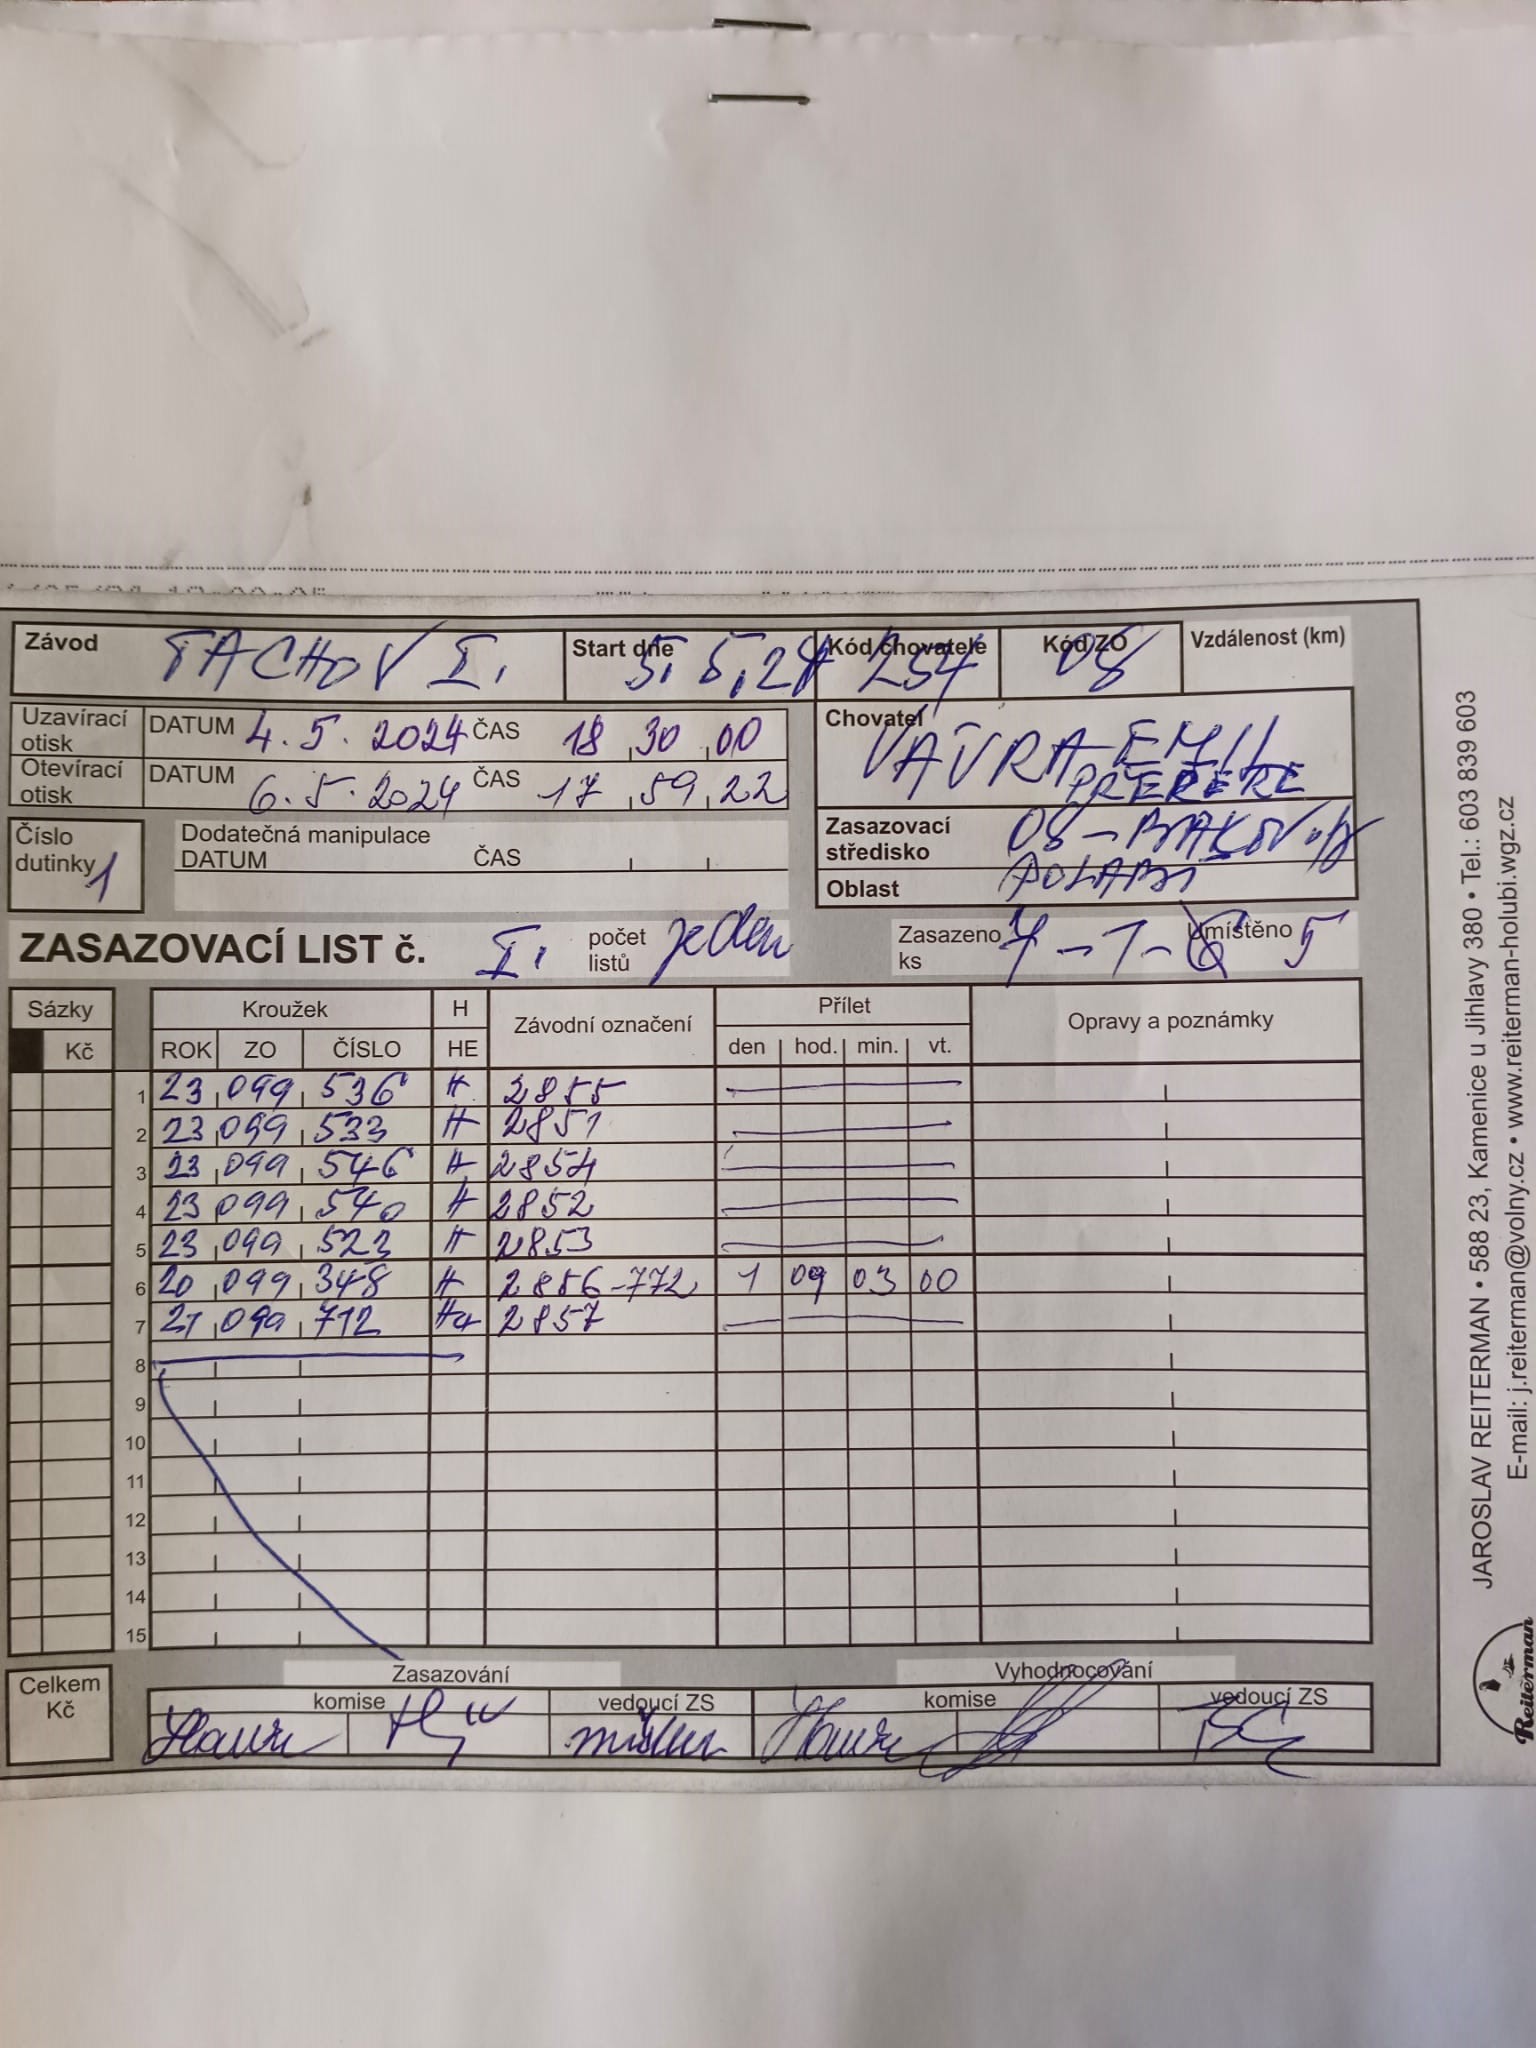 Závod TACHOV I. Start dne 5. 5. 24 Kód chovatele 254 Kód ZO 08 Vzdálenost (km)
Uzavírací otisk DATUM 4. 5. 2024 ČAS 18 30 00
Otevírací otisk DATUM 6. 5. 2024 ČAS 17 59 22
Chovatel VÁVRA EMIL
Číslo dutinky 1
Dodatečná manipulace
DATUM ČAS
Zasazovací středisko 08 - BAKOV
Oblast POLABI
ZASAZOVACÍ LIST č. I. počet listů jeden Zasazeno ks 7 - 1 - Umístěno 5
Sázky Kroužek H Závodní označení Přílet Opravy a poznámky
Kč ROK ZO ČÍSLO HE den hod. min. vt.
1 23 099 536 H 2855
2 23 099 533 H 2851
3 23 099 546 H 2854
4 23 099 540 H 2852
5 23 099 523 H 2853
6 20 099 348 H 2856-772 1 09 03 00
7 21 099 712 2857
8
9
10
11
12
13
14
15
Celkem Kč
Zasazování Vyhodnocování
komise vedoucí ZS komise vedoucí ZS
JAROSLAV REITERMAN • 588 23, Kamenice u Jihlavy 380 • Tel.: 603 839 603
E-mail: j.reiterman@volny.cz • www.reiterman-holubi.wgz.cz
Reiterman